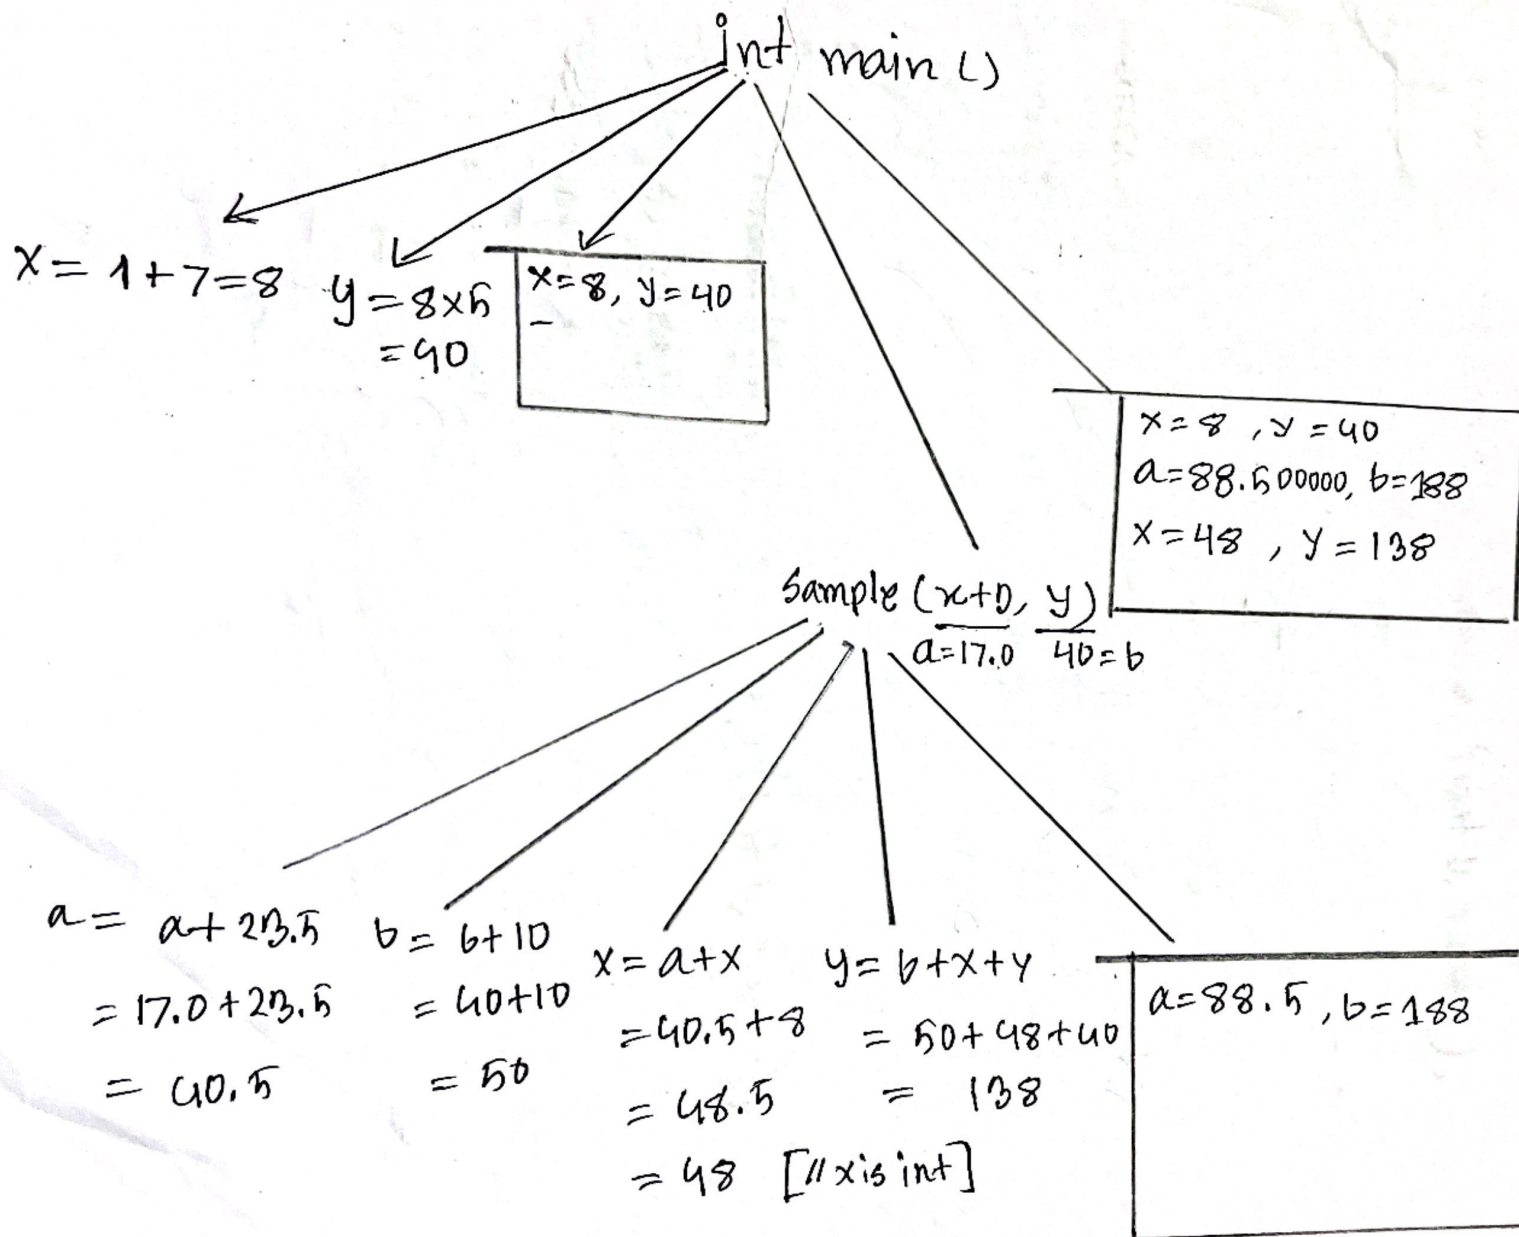 int main ()
x = 1+7=8
y = 8x5
=40
x=8, y=40
x=8, y=40
a=88.500000, b=188
x=48, y=138
sample (x+9, y)
a=17.0 40=b
a= a+23.5
= 17.0+23.5
= 40.5
b= b+10
= 40+10
= 50
x=a+x
=40.5+8
= 48.5
= 48 [// x is int]
y= b+x+y
= 50+48+40
= 138
a=88.5, b=188